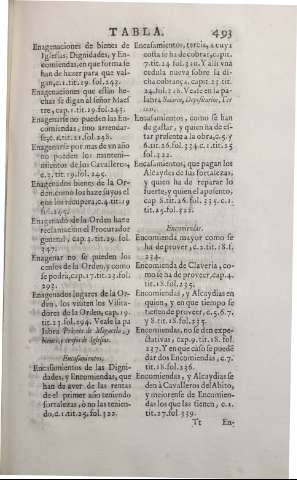 TABLA. 493
Enagenaciones de bienes de
Iglesias, Dignidades, y En-
comiendas, en que forma se
han de hazer para que val-
gan, c.1.tit.29.fol.242.
Enagenaciones que estan he-
chas se digan al señor Maes
tre, cap.1.tit.29.fol.243.
Enagenarse no pueden las En-
comiendas, sino arrendar-
se,
Enagenarse por mas de vn año
no pueden los manteni-
mientos de los Cavalleros,
c.3.tit.29.fol.245.
Enagenados bienes de la Or-
den, como los haze suyos el
que los recupera, c.4.tit.29
fol.245.
Enagenado de la Orden haze
reclamacion el Procurador
general, cap.3.tit.29.fol.
347.
Enagenar no se pueden los
censos de la Orden, y como
se podra, cap.17.tit.23.fol.
203.
Enagenados lugares de la Or-
den, los visiten los Visita-
dores de la Orden, cap.19.
tit.23.fol.294. Vease la pa
labra
bienes,
Encasamientos.
Encasamientos de las Digni-
dades, y Encomiendas, que
han de aver de las rentas
de el primer año teniendo
fortalezas, ò no las tenien-
do, c.1.tit.25, fol.322.
Encasamientos, tercia, a cuya
costa se ha de cobrar, cap.
7.tit.24.fol.310. Y alli vna
cedula nueva sobre la di-
cha cobrança, cap.
24.fol.318. Vease en la pa-
labra Notario, Depositario, Ter
cias,
Encasamientos, como se han
de gastar, y quien ha de es-
tar presente a la obra, c.5. y
6.tit.26.fol.334.c.1.tit.25
fol.322.
Encasamientos, que pagan los
Alcaydes de las fortalezas,
y quien ha de reparar lo
fuerte, y quien el aposento,
cap 8.tit.26.fol.335.c.1.
tit.25.fol.322.
Encomiendas.
Encomienda mayor como se
ha de proveer, c.2.tit.18.f.
234.
Encomienda de Claveria, co-
mo se ha de proveer, cap.4.
tit.18.fol.235.
Encomiendas, y Alcaydias en
quien, y en que tiempo se
tienen de proveer, c.5.6.7.
y 8.tit.18.fol.235.
Encomiendas, no se den expe-
ctativas, cap.9.tit.18.fol.
237. Y en que caso se puede
dar dos Encomiendas, c.7.
tit.18.fol.236.
Encomiendas, y Alcaydias se
den à Cavalleros del Abito,
y mejorense de Encomien-
das los que las tienen, c.1.
tit.27.fol.339.
Tt En-